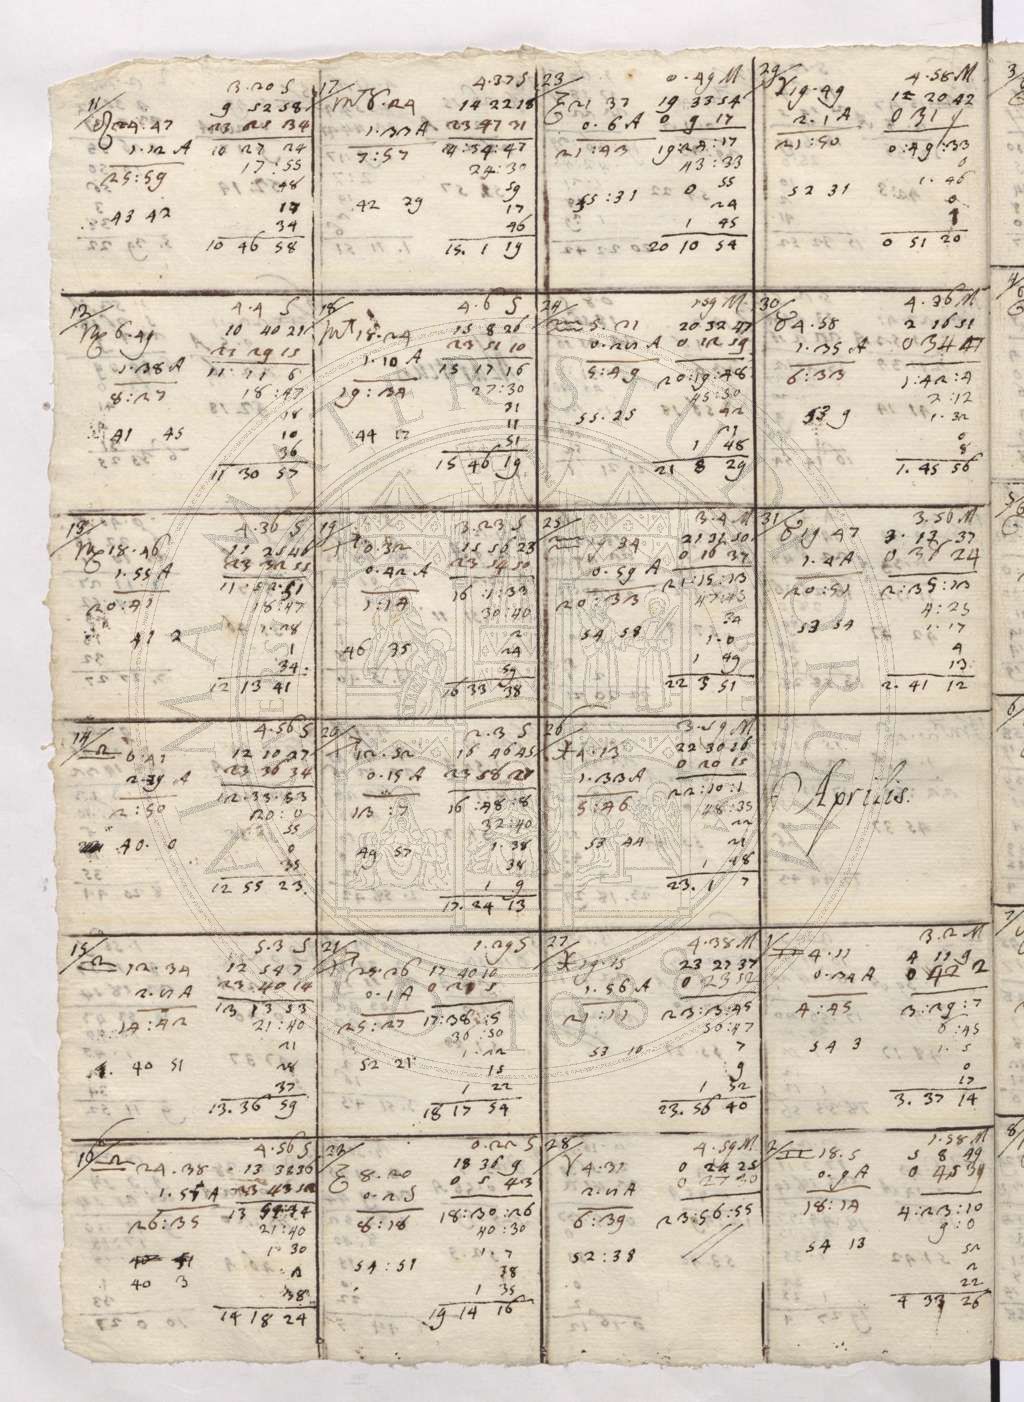 11/
3.20 S
9 52 58
♌ 24.47 23 25 34
1.12 A 10 27 24
25:59 17:55
48
43 42 17
34
10 46 58
12/
4.4 S
♍ 6.49 10 40 21
23 29 15
1.38 A 11:11 6
8:27 18:47
18
41 45 10
36
11 30 57
13/
4.36 S
♍ 18.46 11 25 46
1.55 A 23 32 55
20:41 18:47
1.28
41 2 1
34
12 13 41
14/
4.56 S
♎ 0.41 12 10 27
2.39 A 23 36 34
2:50 20:0
55
40.0 0
35
12 55 23
15/
5.3 S
♎ 12.34 12 54 7
23.40 14
13 13 53
14:42 21:40
21
40 51 28
37
13.36 59
16/
4.56 S
♎ 24.38
26:35 21:40
1 30
40 3
38
14 18 24
17/
4.37 S
♏ 8.24 14 22 18
1.33 A 23 47 31
7:57
24:30
59
42 29 17
46
15.1 19
18/
4.6 S
♏ 18.24 15 8 26
23 51 10
1.10 A 15 17 16
19:34 27:30
21
11
44 12 51
15 46 19
19/
3.23 S
♐ 0.32 15 56 23
0.42 A 23 54 50
1:14 16:1:33
30:40
2
46 35 24
59
16 33 38
20/
2.3 S
♐ 12.52 16 46 45
0.15 A
13:7 16:48:8
32:40
49 57 1.38
38
1 9
17.24 13
21/
1.29 S
♐ 25.26 17 40 10
0.1 A
25:27 17:38:5
36:30
52 21 15
1 22
18 17 54
22/
0.22 S
♑ 8.20 18 36 9
0.2 S 0 5 43
8:18 18:30:26
40:30
54:51 1.7
38
1 35
19 14 16
23/
0.49 M
♑ 21 37 19 33 54
0.6 A 0 9 17
21:43 19:24:17
43:33
55:31 0 55
24
1 45
20 10 54
24/
♒ 5.21 20 32 47
0 12 59
5:49 20:19:48
45:50
55:25 42
21
1 48
21 8 29
25/
3.4 M
♒ 19 34
0.59 A 0 16 37
20:33 21:15:13
47:43
34
54 58 1.0
1 49
22 3 51
26/
3.59 M
♓ 4.13 22 30 16
1.33 A 0 20 15
5:46 22:10:1
48:35
22
53 44 21
1 48
23.1 7
27/
4.38 M
♓ 19.15 23 27 37
1.56 A 0 23 52
21:11 23:3:45
50:47
53 10 7
9
1 32
23.56 40
28/
4.59 M
♈ 4.37 0 24 25
2.2 A 0 27 20
6:39 23:56:55
52:38
29/
4.58 M
♈ 19.49 12 20 42
2.1 A 0 31 9
21:50 0:49:33
0
52 31 1.46
0
1
0 51 20
30/
4.36 M
♉ 4.58 2 16 51
1.35 A 0 34 47
6:33 1:42:4
2:12
53 9 1.32
0
8
1.45 56
31/
3.50 M
♉ 19 47 3.13 37
1.4 A
20:51 2:35:13
4:25
53 54 1.17
4
13
2.41 12
Aprilis.
1/
3.2 M
♊ 4.11 4 11 9
0.34 A 0 42 2
4:45 3:29:7
6:45
54 3 1.5
0
17
3.37 14
2/
1.58 M
♊ 18.5 5 8 49
0.9 A 0 45 39
18:14 4:23:10
9:0
54 13 52
2
22
4 33 26
3/
4/
5/
6/
7/
8/